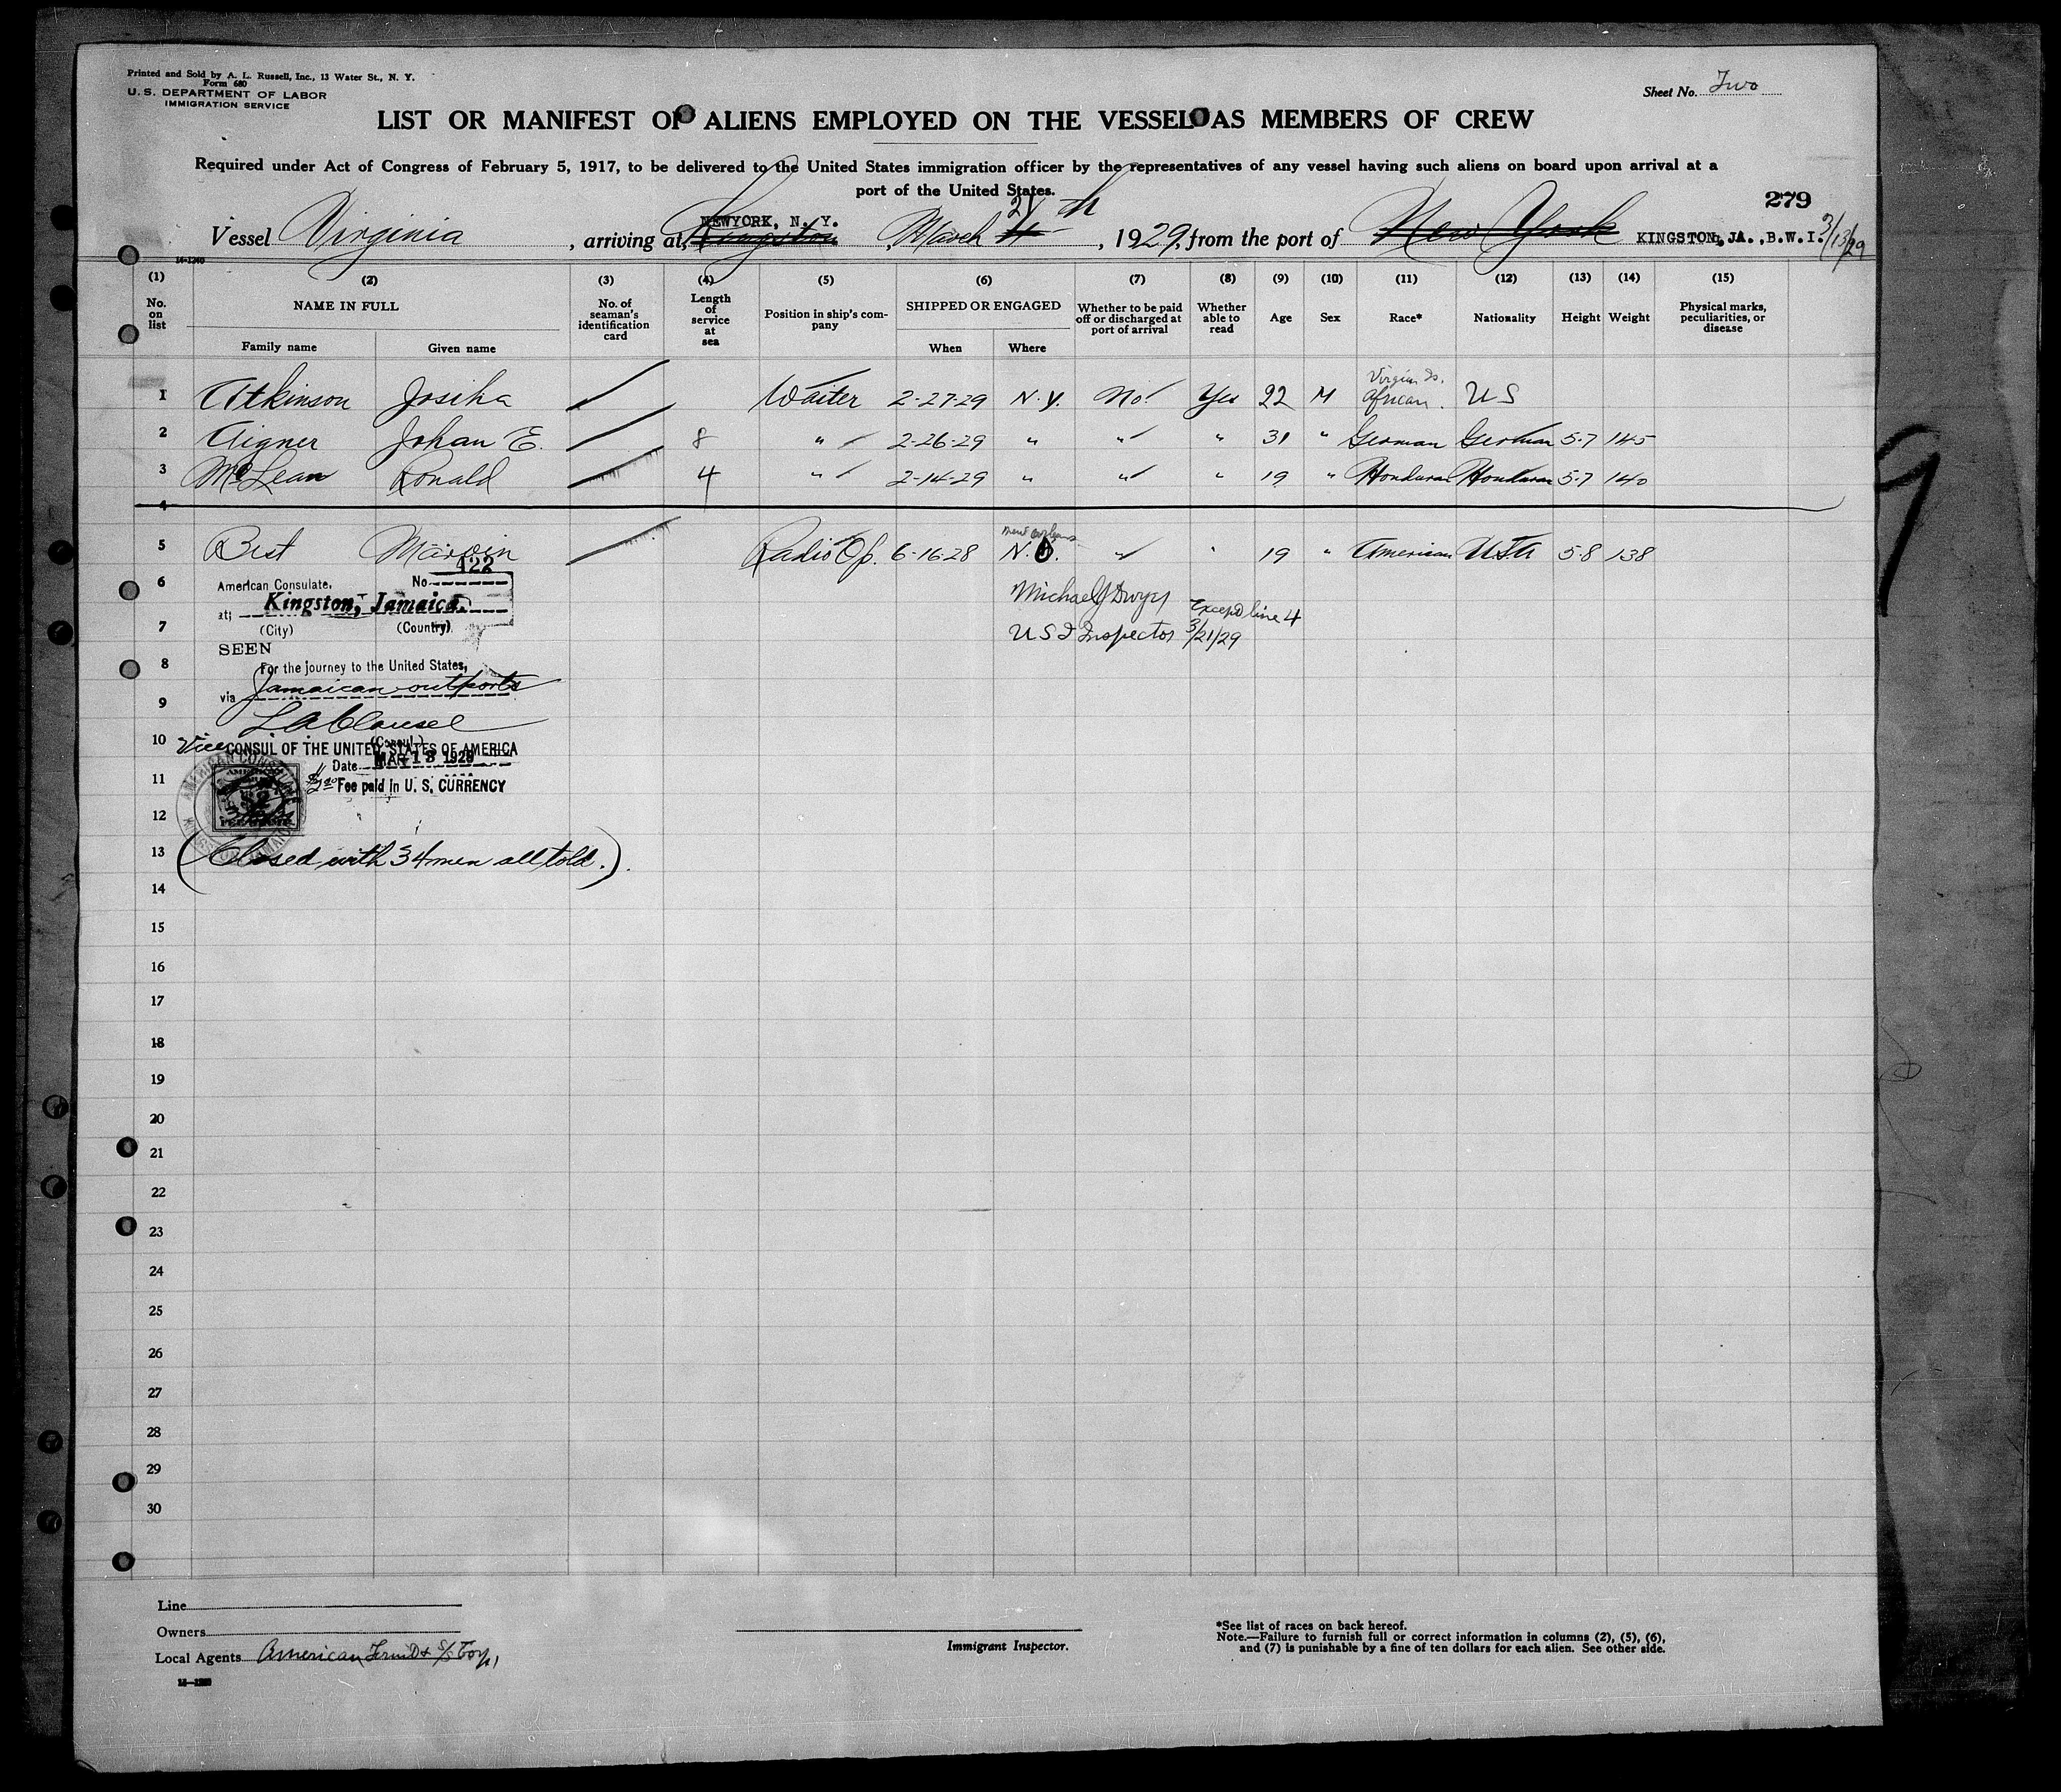 Printed and Sold by A. L. Russell, Inc., 13 Water St., N. Y.
Form 680
U. S. DEPARTMENT OF LABOR
IMMIGRATION SERVICE
Sheet No. Two
LIST OR MANIFEST OF ALIENS EMPLOYED ON THE VESSEL AS MEMBERS OF CREW
Required under Act of Congress of February 5, 1917, to be delivered to the United States immigration officer by the representatives of any vessel having such aliens on board upon arrival at a
port of the United States.
279
Vessel Virginia, arriving at Kingston NEWYORK, N. Y. March 21th, 1929, from the port of New York KINGSTON, JA., B.W.I. 3/13/29
14-1240
(1) (2) (3) (4) (5) (6) (7) (8) (9) (10) (11) (12) (13) (14) (15)
No. on list NAME IN FULL Family name Given name No. of seaman's identification card Length of service at sea Position in ship's company SHIPPED OR ENGAGED When Where Whether to be paid off or discharged at port of arrival Whether able to read Age Sex Race* Nationality Height Weight Physical marks, peculiarities, or disease
Virgin Is.
1 Atkinson Josiha Waiter 2-27-29 N.Y. No Yes 22 M African. US
2 Aigner Johan E. 8 " 2-26-29 " " " 31 " German German 5-7 145
3 McLean Ronald 4 " 2-14-29 " " " 19 " Honduran Honduran 5-7 140
4
New Orleans
5 Best Marvin Radio Op. 6-16-28 N.O. " " 19 " American USA 5-8 138
6 American Consulate, No 422
at; Kingston, Jamaica.
(City) (Country)
Michael J Dwyer
Except line 4
7 USI Inspector 3/21/29
SEEN
8 For the journey to the United States,
via Jamaican outports
9
10 Vice CONSUL OF THE UNITED STATES OF AMERICA
(Consul)
Date MAR 13 1929
11 $2.00 Fee paid in U. S. CURRENCY
AMERICAN CONSULATE
12
13 (Closed with 34 men all told.)
14
15
16
17
18
19
20
21
22
23
24
25
26
27
28
29
30
Line
Owners
Local Agents
Immigrant Inspector.
*See list of races on back hereof.
Note.—Failure to furnish full or correct information in columns (2), (5), (6),
and (7) is punishable by a fine of ten dollars for each alien. See other side.
9